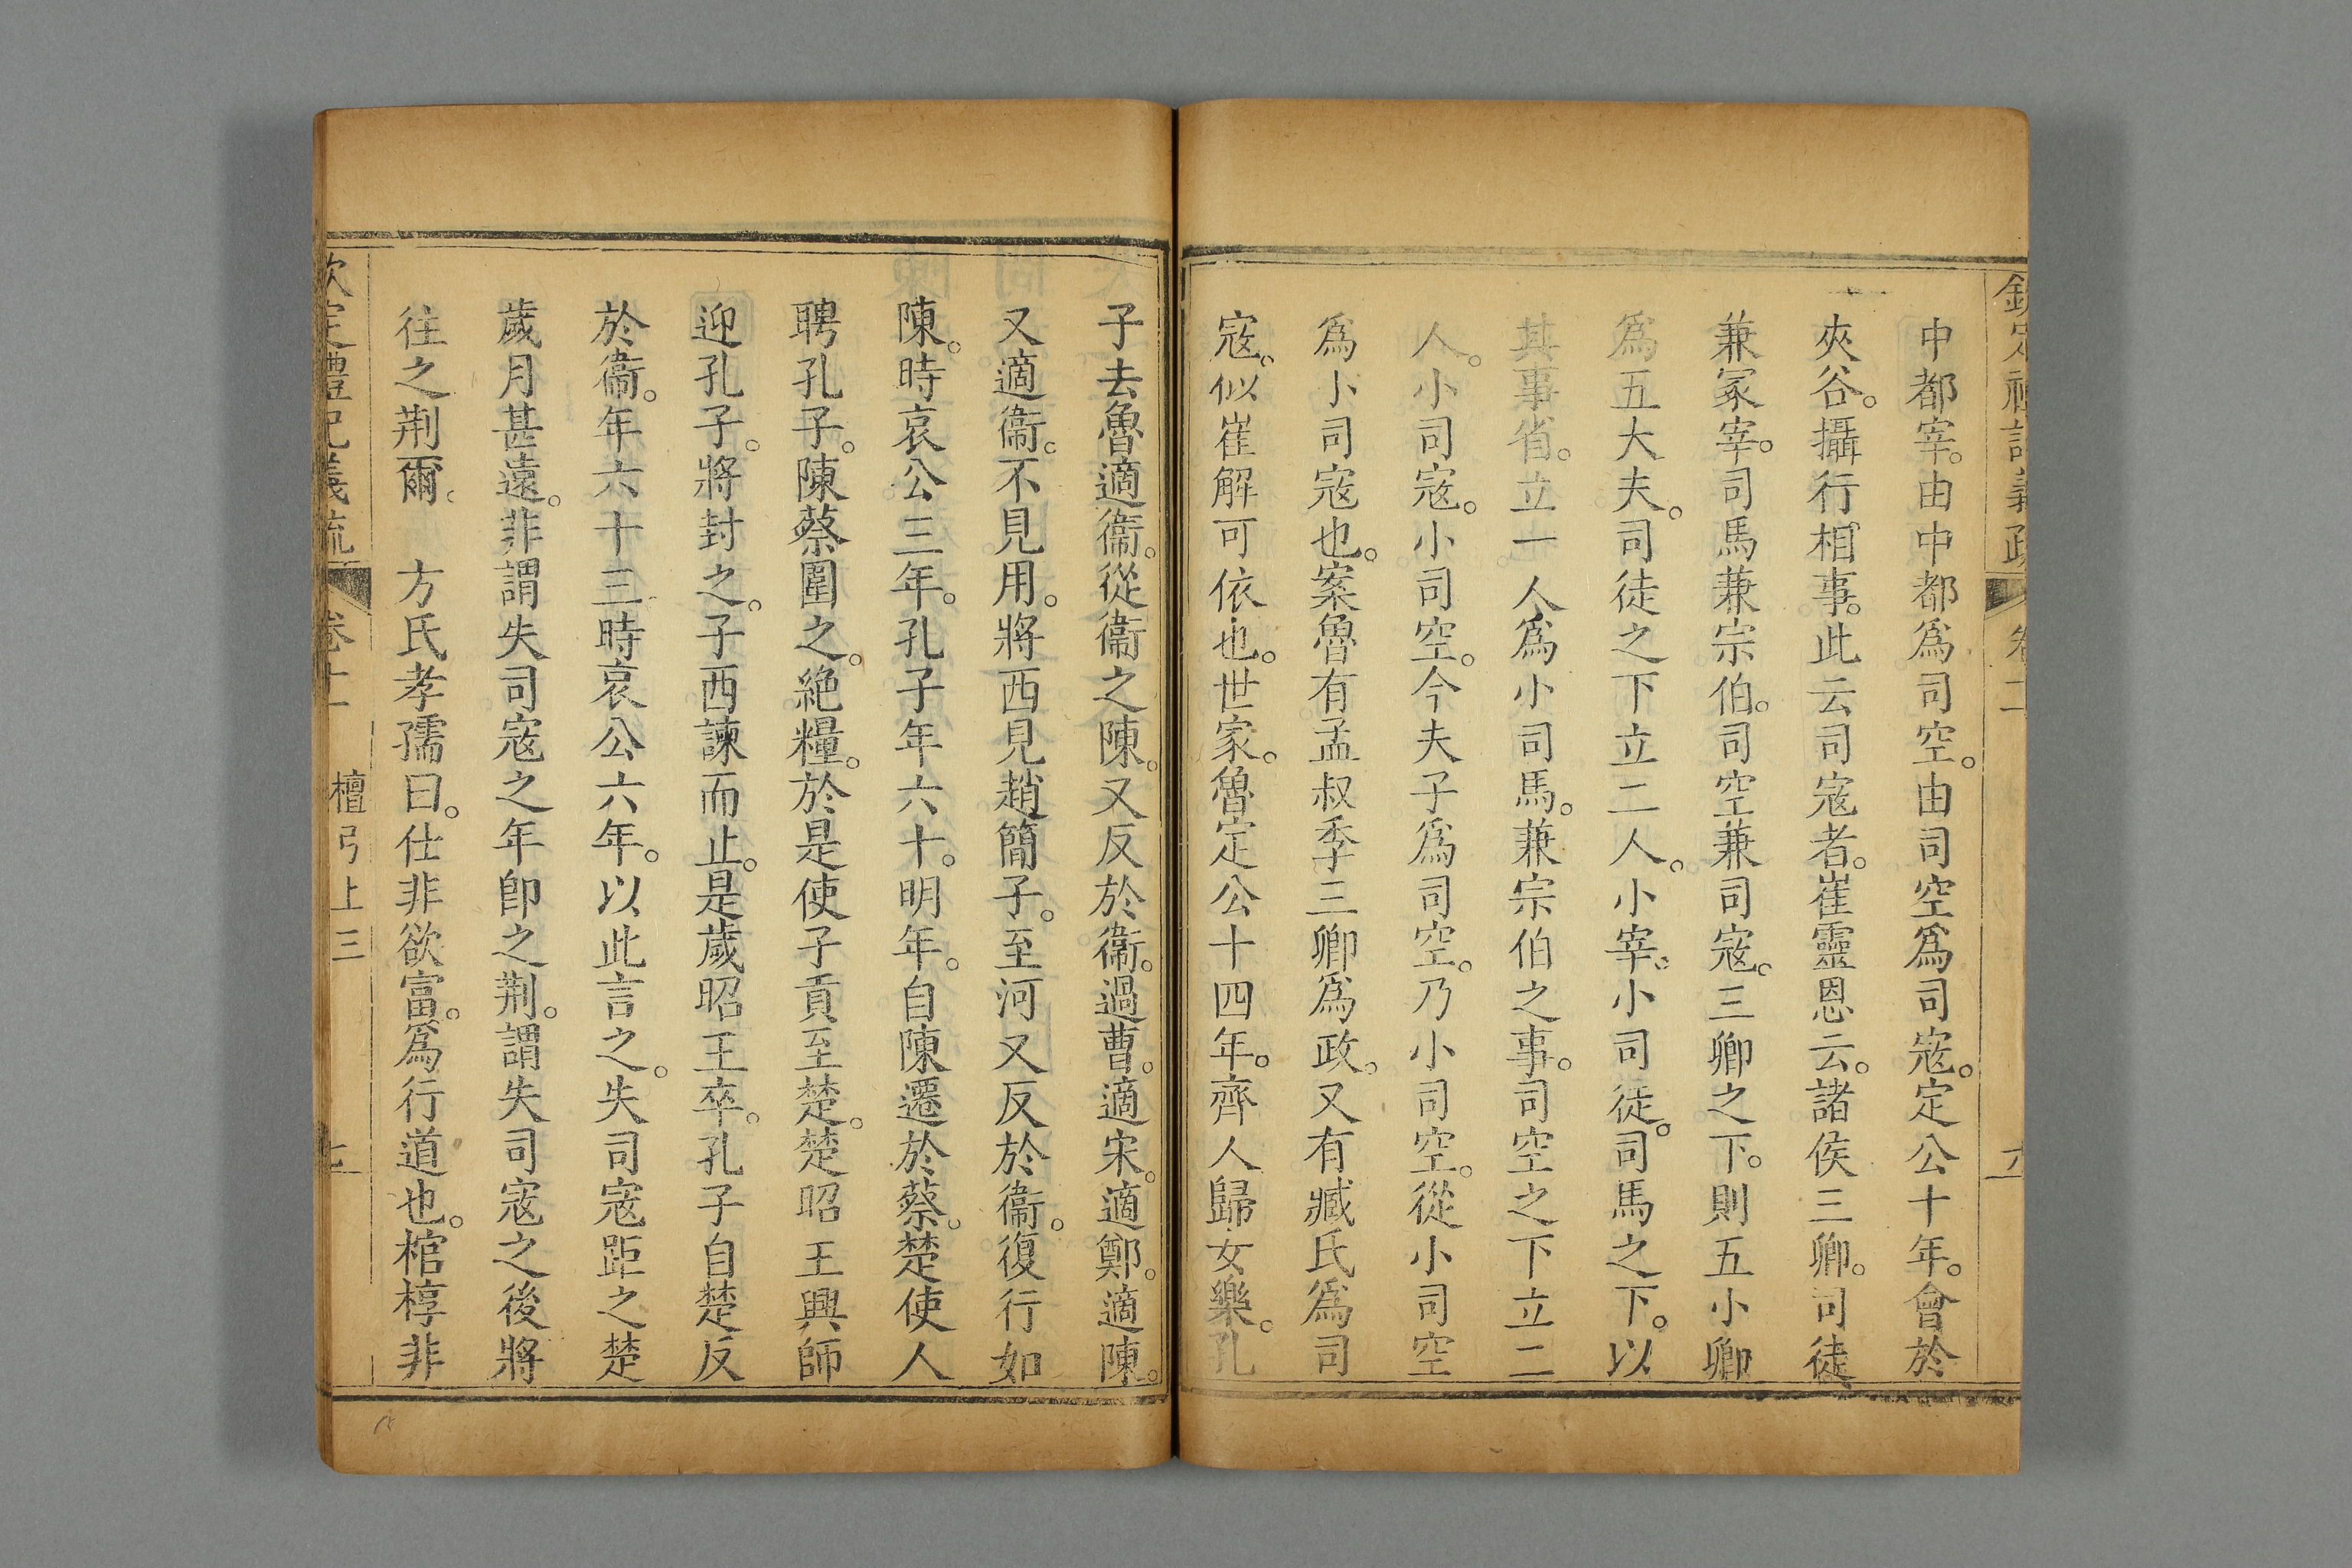 中都宰。由中都爲司空。由司空爲司寇。定公十年。會於
夾谷。攝行相事。此云司寇者。崔靈恩云。諸侯三卿。司徒
兼冢宰。司馬兼宗伯。司空兼司寇。三卿之下。則五小卿
爲五大夫。司徒之下立二人。小宰。小司徒。司馬之下。以
其事省。立一人爲小司馬。兼宗伯之事。司空之下立二
人。小司寇。小司空。今夫子爲司空。乃小司空。從小司空
爲小司寇也。案魯有孟叔季三卿爲政。又有臧氏爲司
寇。似崔解可依也。世家。魯定公十四年。齊人歸女樂。孔
子去魯適衞。從衞之陳。又反於衞。過曹。適宋。適鄭。適陳。
又適衞。不見用。將西見趙簡子。至河又反於衞。復行如
陳。時哀公三年。孔子年六十。明年。自陳遷於蔡。楚使人
聘孔子。陳蔡圍之。絶糧。於是使子貢至楚。楚昭王興師
迎孔子。將封之。子西諫而止。是歲昭王卒。孔子自楚反
於衞。年六十三時哀公六年。以此言之。失司寇距之楚
歲月甚遠。非謂失司寇之年卽之荆。謂失司寇之後將
往之荆爾。 方氏孝孺曰。仕非欲富。爲行道也。棺椁非
欽定禮記義疏 卷十一 檀弓上三 七